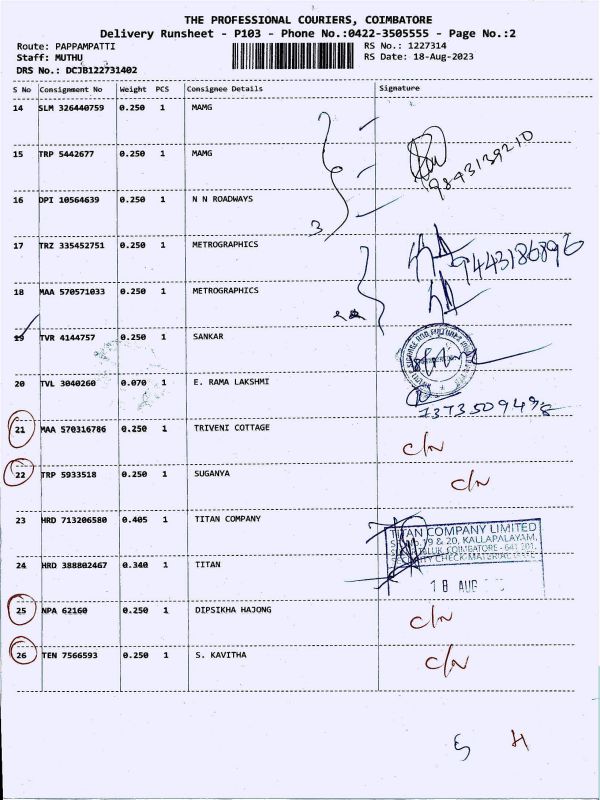 THE PROFESSIONAL COURIERS, COIMBATORE
Delivery Runsheet - P103 - Phone No.:0422-3505555 - Page No.:2
Route: PAPPAMPATTI RS No.: 1227314
Staff: MUTHU RS Date: 18-Aug-2023
DRS No.: DCJB122731402
S No Consignment No Weight PCS Consignee Details Signature
14 SLM 326440759 0.250 1 MAMG
15 TRP 5442677 0.250 1 MAMG
9843139210
16 DPI 10564639 0.250 1 N N ROADWAYS
3
17 TRZ 335452751 0.250 1 METROGRAPHICS
9443186896
18 MAA 570571033 0.250 1 METROGRAPHICS
19 TVR 4144757 0.250 1 SANKAR
20 TVL 3040260 0.070 1 E. RAMA LAKSHMI
7373509498
21 MAA 570316786 0.250 1 TRIVENI COTTAGE c/n
22 TRP 5933518 0.250 1 SUGANYA c/n
23 HRD 713206580 0.405 1 TITAN COMPANY
TITAN COMPANY LIMITED
19 & 20, KALLAPALAYAM,
TALUK, COIMBATORE - 641 201.
24 HRD 388802467 0.340 1 TITAN
18 AUG
25 NPA 62160 0.250 1 DIPSIKHA HAJONG c/n
26 TEN 7566593 0.250 1 S. KAVITHA c/n